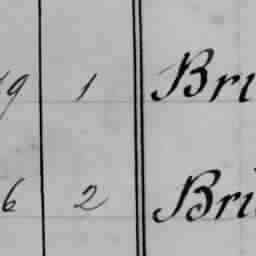 9 1 Bri
6 2 Bri